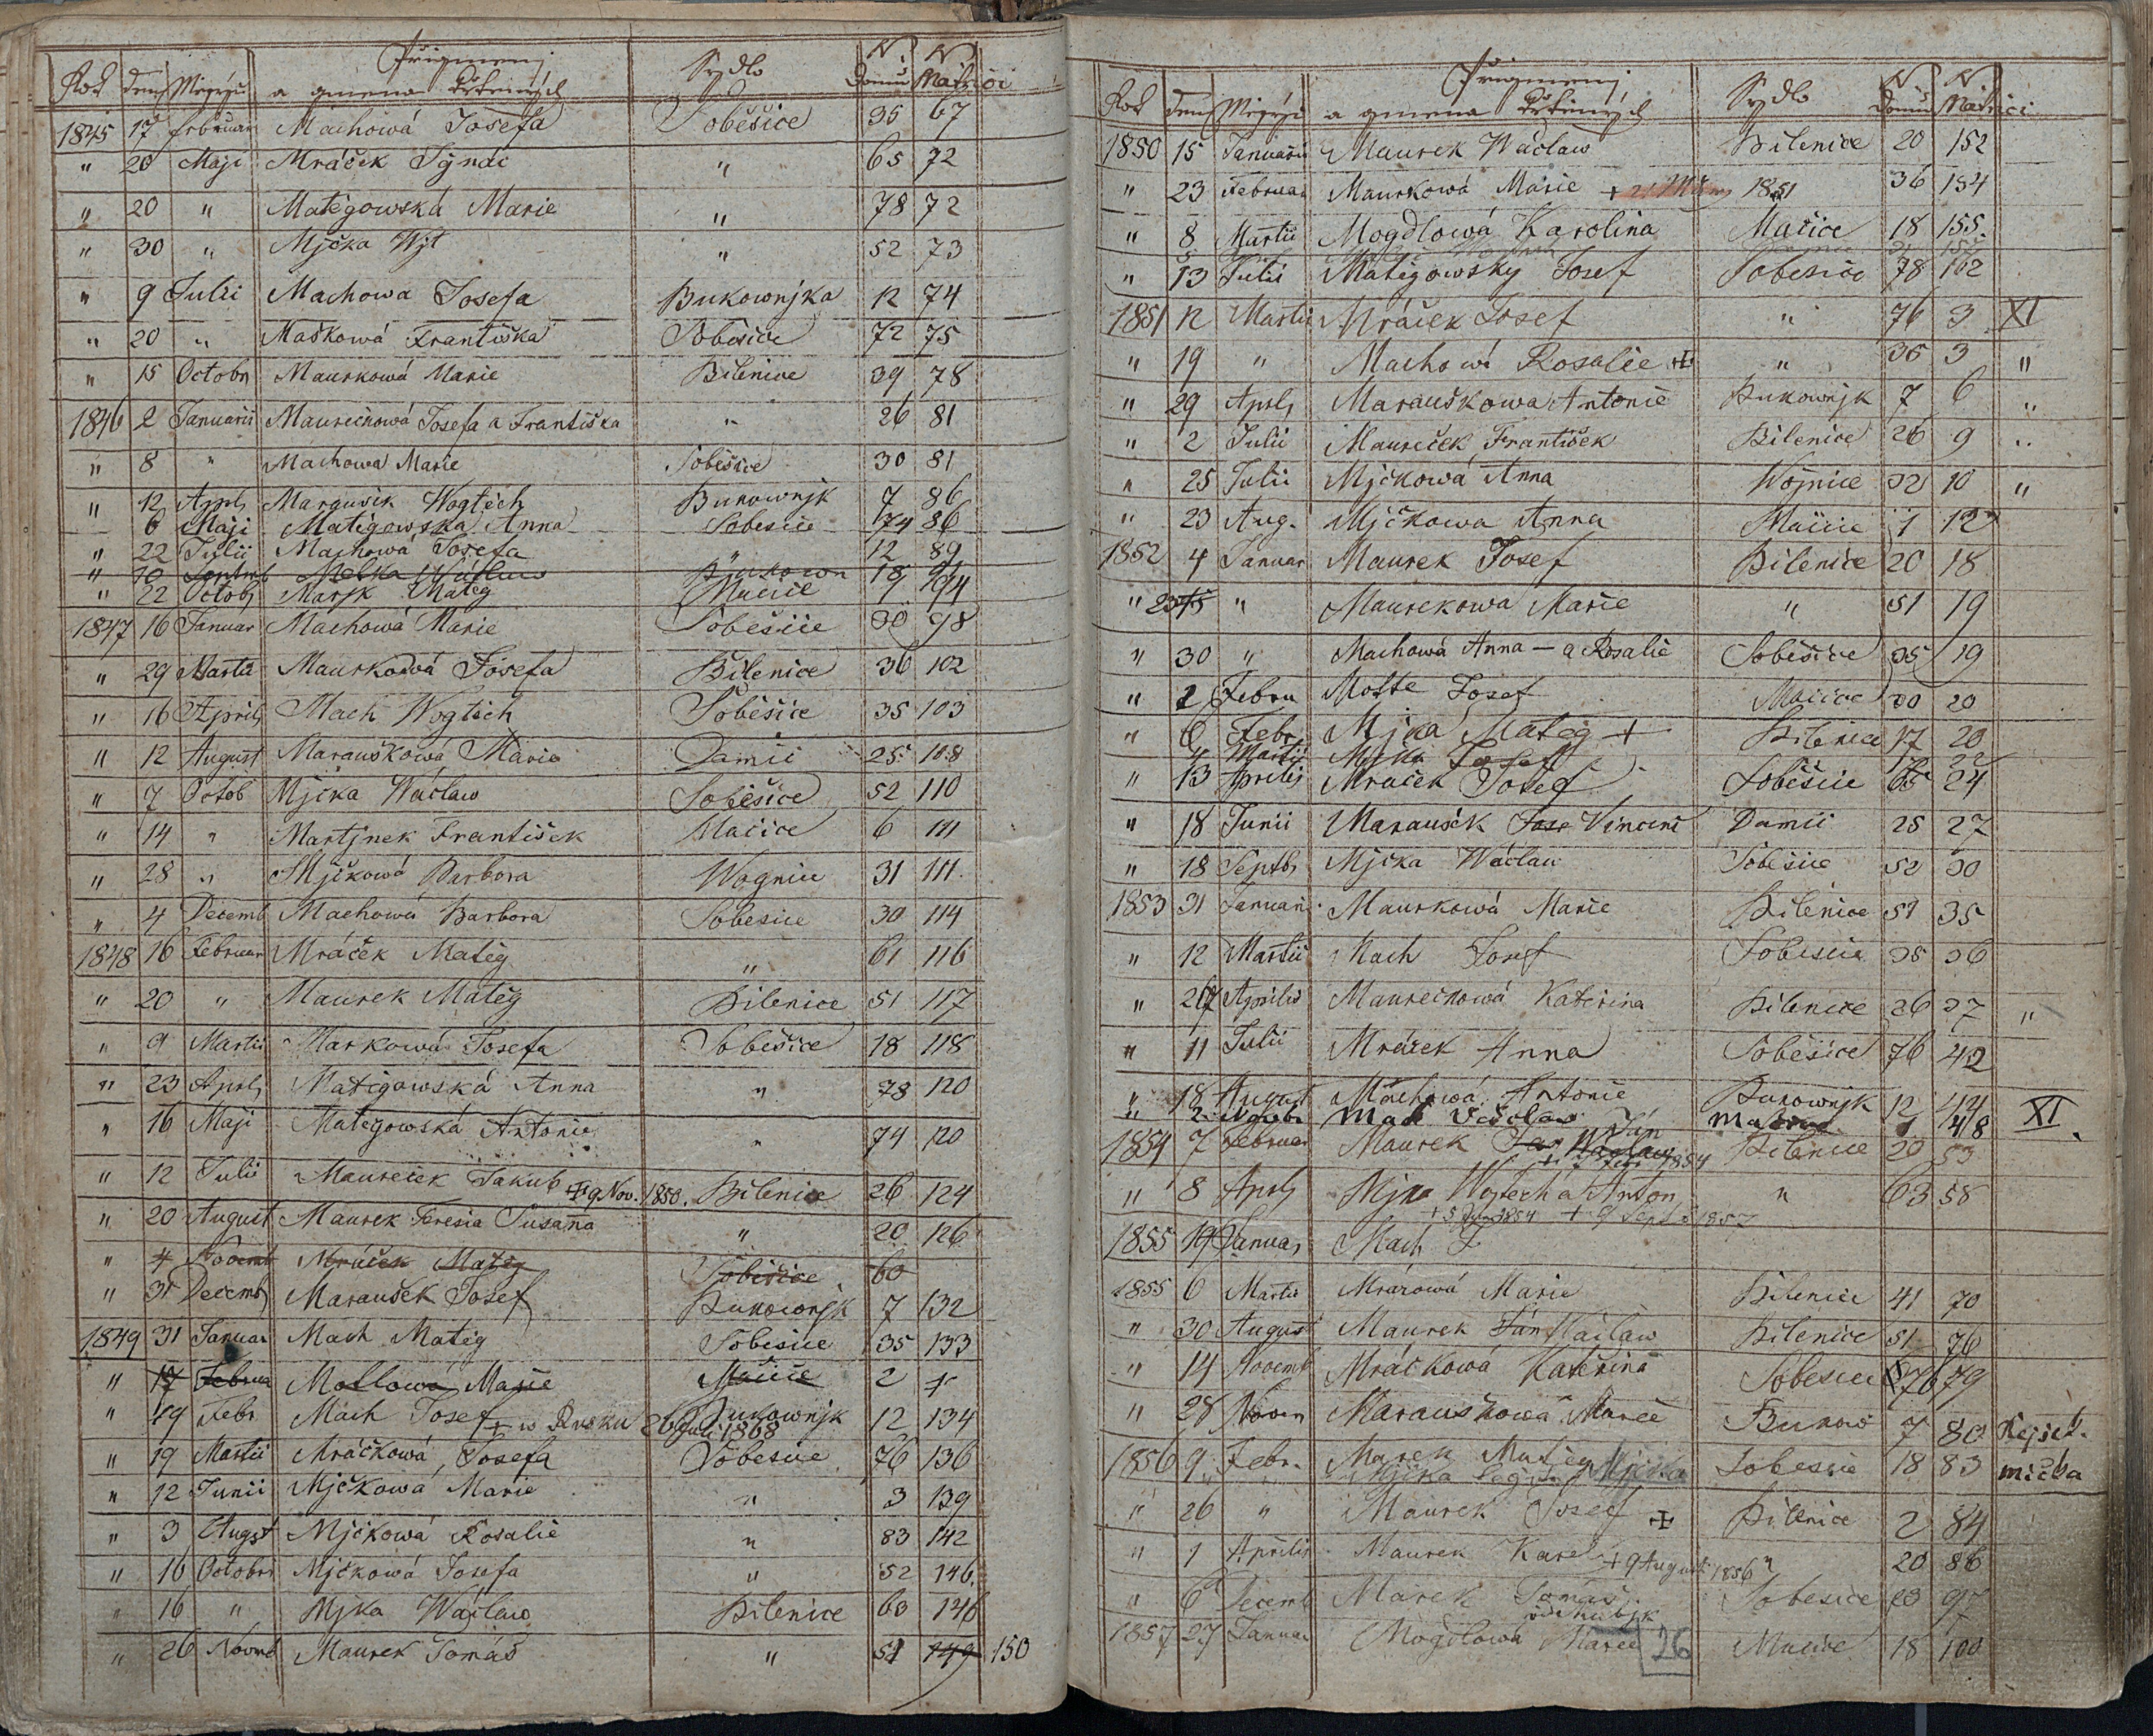 Přigmenj N N
Rok den Měsýc a gmena křtěných Sydlo Domu Matrici
1845 17 Februar Machowá Josefa Soběšice 35 67
" 20 Maji Mráček Ignác " 65 72
" 20 " Matěgowská Marie " 78 72
" 30 " Mjčka Wjt " 52 73
" 9 Julii Machowa Josefa Bukownjka 12 74
" 20 " Maškowá Františka Soběšice 72 75
" 15 Octobr Maurkowá Marie Bílenice 39 78
1846 2 Januarii Maurečkowá Josefa a Františka " 26 81
" 8 " Machowa Marie Soběšice 30 81
" 12 April Maraušek Wogtěch Bukownjk 7 86
6 Maji Matěgowska Anna Sobesice 74 86
" 22 Julii Machowá Josefa " 12 89
" 10 Septmb Melka Wáclaw Bukown 18 91
" 22 Octob Marjk Matěg Mačice 7 94
1847 16 Januar Machowá Marie Soběšice 30 98
" 29 Martii Maurkowá Josefa Bílenice 36 102
" 16 April Mach Wogtěch Soběšice 35 103
" 12 August Marauškowá Marie Damíč 25 108
" 7 Octob Mjčka Wáclaw Soběšice 52 110
" 14 " Martjnek František Mačice 6 111
" 28 " Mjčkowá Barbora Wognice 31 111
" 4 Decemb Machowá Barbora Sobesice 30 114
1848 16 Februar Mráček Matěg " 61 116
" 20 " Maurek Matěg Bílenice 51 117
" 9 Martii Markowá Josefa Soběšice 18 118
" 23 April Matěgowská Anna " 78 120
" 16 Maji Matěgowská Antonie " 74 120
" 12 Julii Maureček Jakub + 9 Nov. 1850. Bílenice 26 124
" 20 August Maurek Teresia Susana " 20 126
" 4 Novemb Mráček Matěg Soběšice 60
" 31 Decemb Maraušek Josef Bukownjk 7 132
1849 31 Januar Mach Matěg Sobesice 35 133
" 17 Februa Mollowá Marie Mačice 2
" 19 Febr Mach Josef + w Rusku 26 Juli 1868 Bukownjk 12 134
" 19 Martii Mráčkowá Josefa Sobesice 76 136
" 12 Junii Mjčkowá Marie " 3 139
" 3 Augst Mjčkowá Rosalie " 83 142
" 10 Octobr Mjčkowá Josefa " 52 146
" 16 " Mjka Wáclaw Bílenice 63 146
" 26 Novmb Maurek Tomáš " 51 149 150
Přigmenj N N
Rok den Měsýc a gmena křtěných Sydlo Domu Matrici
1850 15 Januarii Maurek Wáclaw Bílenice 20 152
" 23 Februar Maurkowá Marie + 1851 36 154
" 8 Martii Mogdlowá Karolina Mačice 18 155
" 13 Julii Matěgowsky Josef Sobesice 78 162
1851 12 Martii Mráček Josef " 76 3 XI
" 19 " Machowá Rosalie + " 35 3 "
" 29 April Marauškowa Antonie Bukownjk 7 6 "
" 2 Julii Maureček František Bílenice 26 9 "
" 25 Julii Mjčkowá Anna Wojnice 32 10 "
" 23 Aug. Mjčkowa Anna Mačice 1 12
1852 4 Januar Maurek Josef Bílenice 20 18
" " Maurekowa Marie " 51 19
" 30 " Machowá Anna - a Rosalie Soběšice 35 19
" 2 Febru Motte Josef Mačice 30 20
" 6 Febr Mjka Matěg + Bílenice 17 20
4 Martii Mjčka Josef
" 13 Aprilis Mraček Josef Soběšice 65 24
" 18 Junii Maraušek Jose Vincenc Damíč 25 27
" 18 Septb Mjčka Wáclaw Sobesice 52 30
1853 31 Januari Maurkowá Marie Bílenice 51 35
" 12 Martii Mach Josef Sobesice 35 36
" Aprilis Maurečkowá Kateřina Bílenice 26 37 "
" 11 Julii Mráček Anna Soběšice 76 42
" 18 August Machowá Antonie Bukownjk 12 44 XI
" 2 Novb Mač Václav 48
1854 7 Februar Maurek Jan Bílenice 20 53
" 8 April Mjka Wojtech a Anton " 63 58
+ 5 Jun 1854 + 9 Sept 1857
1855 19 Januar Mach F
1855 6 Martii Mrázowá Marie Bílenice 41 70
" 30 August Maurek Ján Wáclaw Bílenice 51 76
" 14 Novemb Mráčkowá Kateřina Sobesice 76 79
" 28 Novem Marauškowá Marie Bukow 7 80 Rejšt.
1856 9 Febr. Marek Matěg Sobesice 18 83 mička
" 26 " Maurek Josef + Bílenice 2 84
" 1 Aprilis Maurek Karel + 9 August 1856 " 20 86
" 6 Decemb Marek Tomáš Sobesice 97
1857 27 Januar Mogdlowá Marie 26 Mačice 18 100